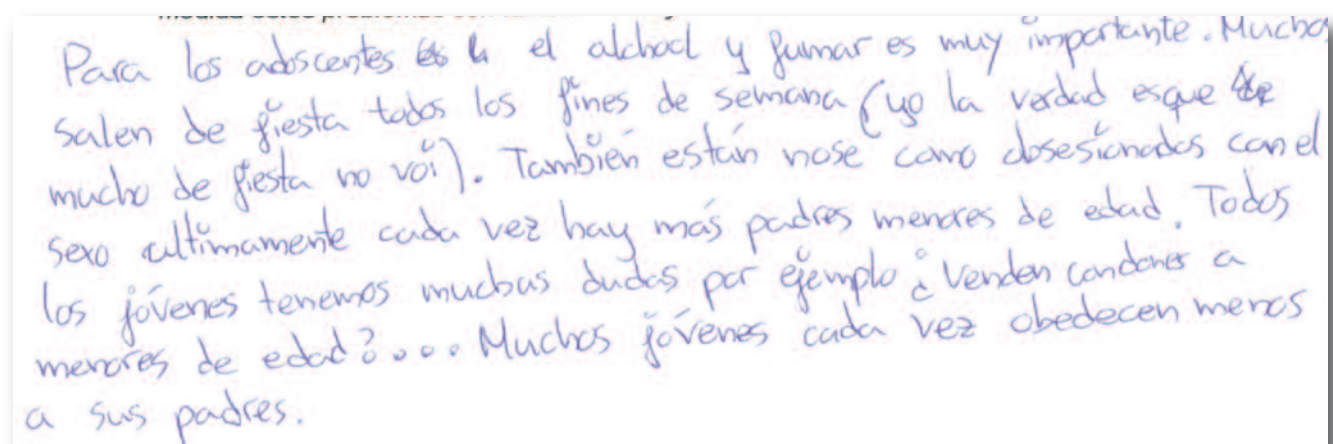 Para los adoscentes el alchool y fumar es muy importante. Mucho
salen de fiesta todos los fines de semana (yo la verdad esque
mucho de fiesta no voi). También están nose como obsesionados con el
sexo ultimamente cada vez hay más padres menores de edad. Todos
los jóvenes tenemos muchas dudas por ejemplo ¿Venden condones a
menores de edad?.... Muchos jóvenes cada vez obedecen menos
a sus padres.